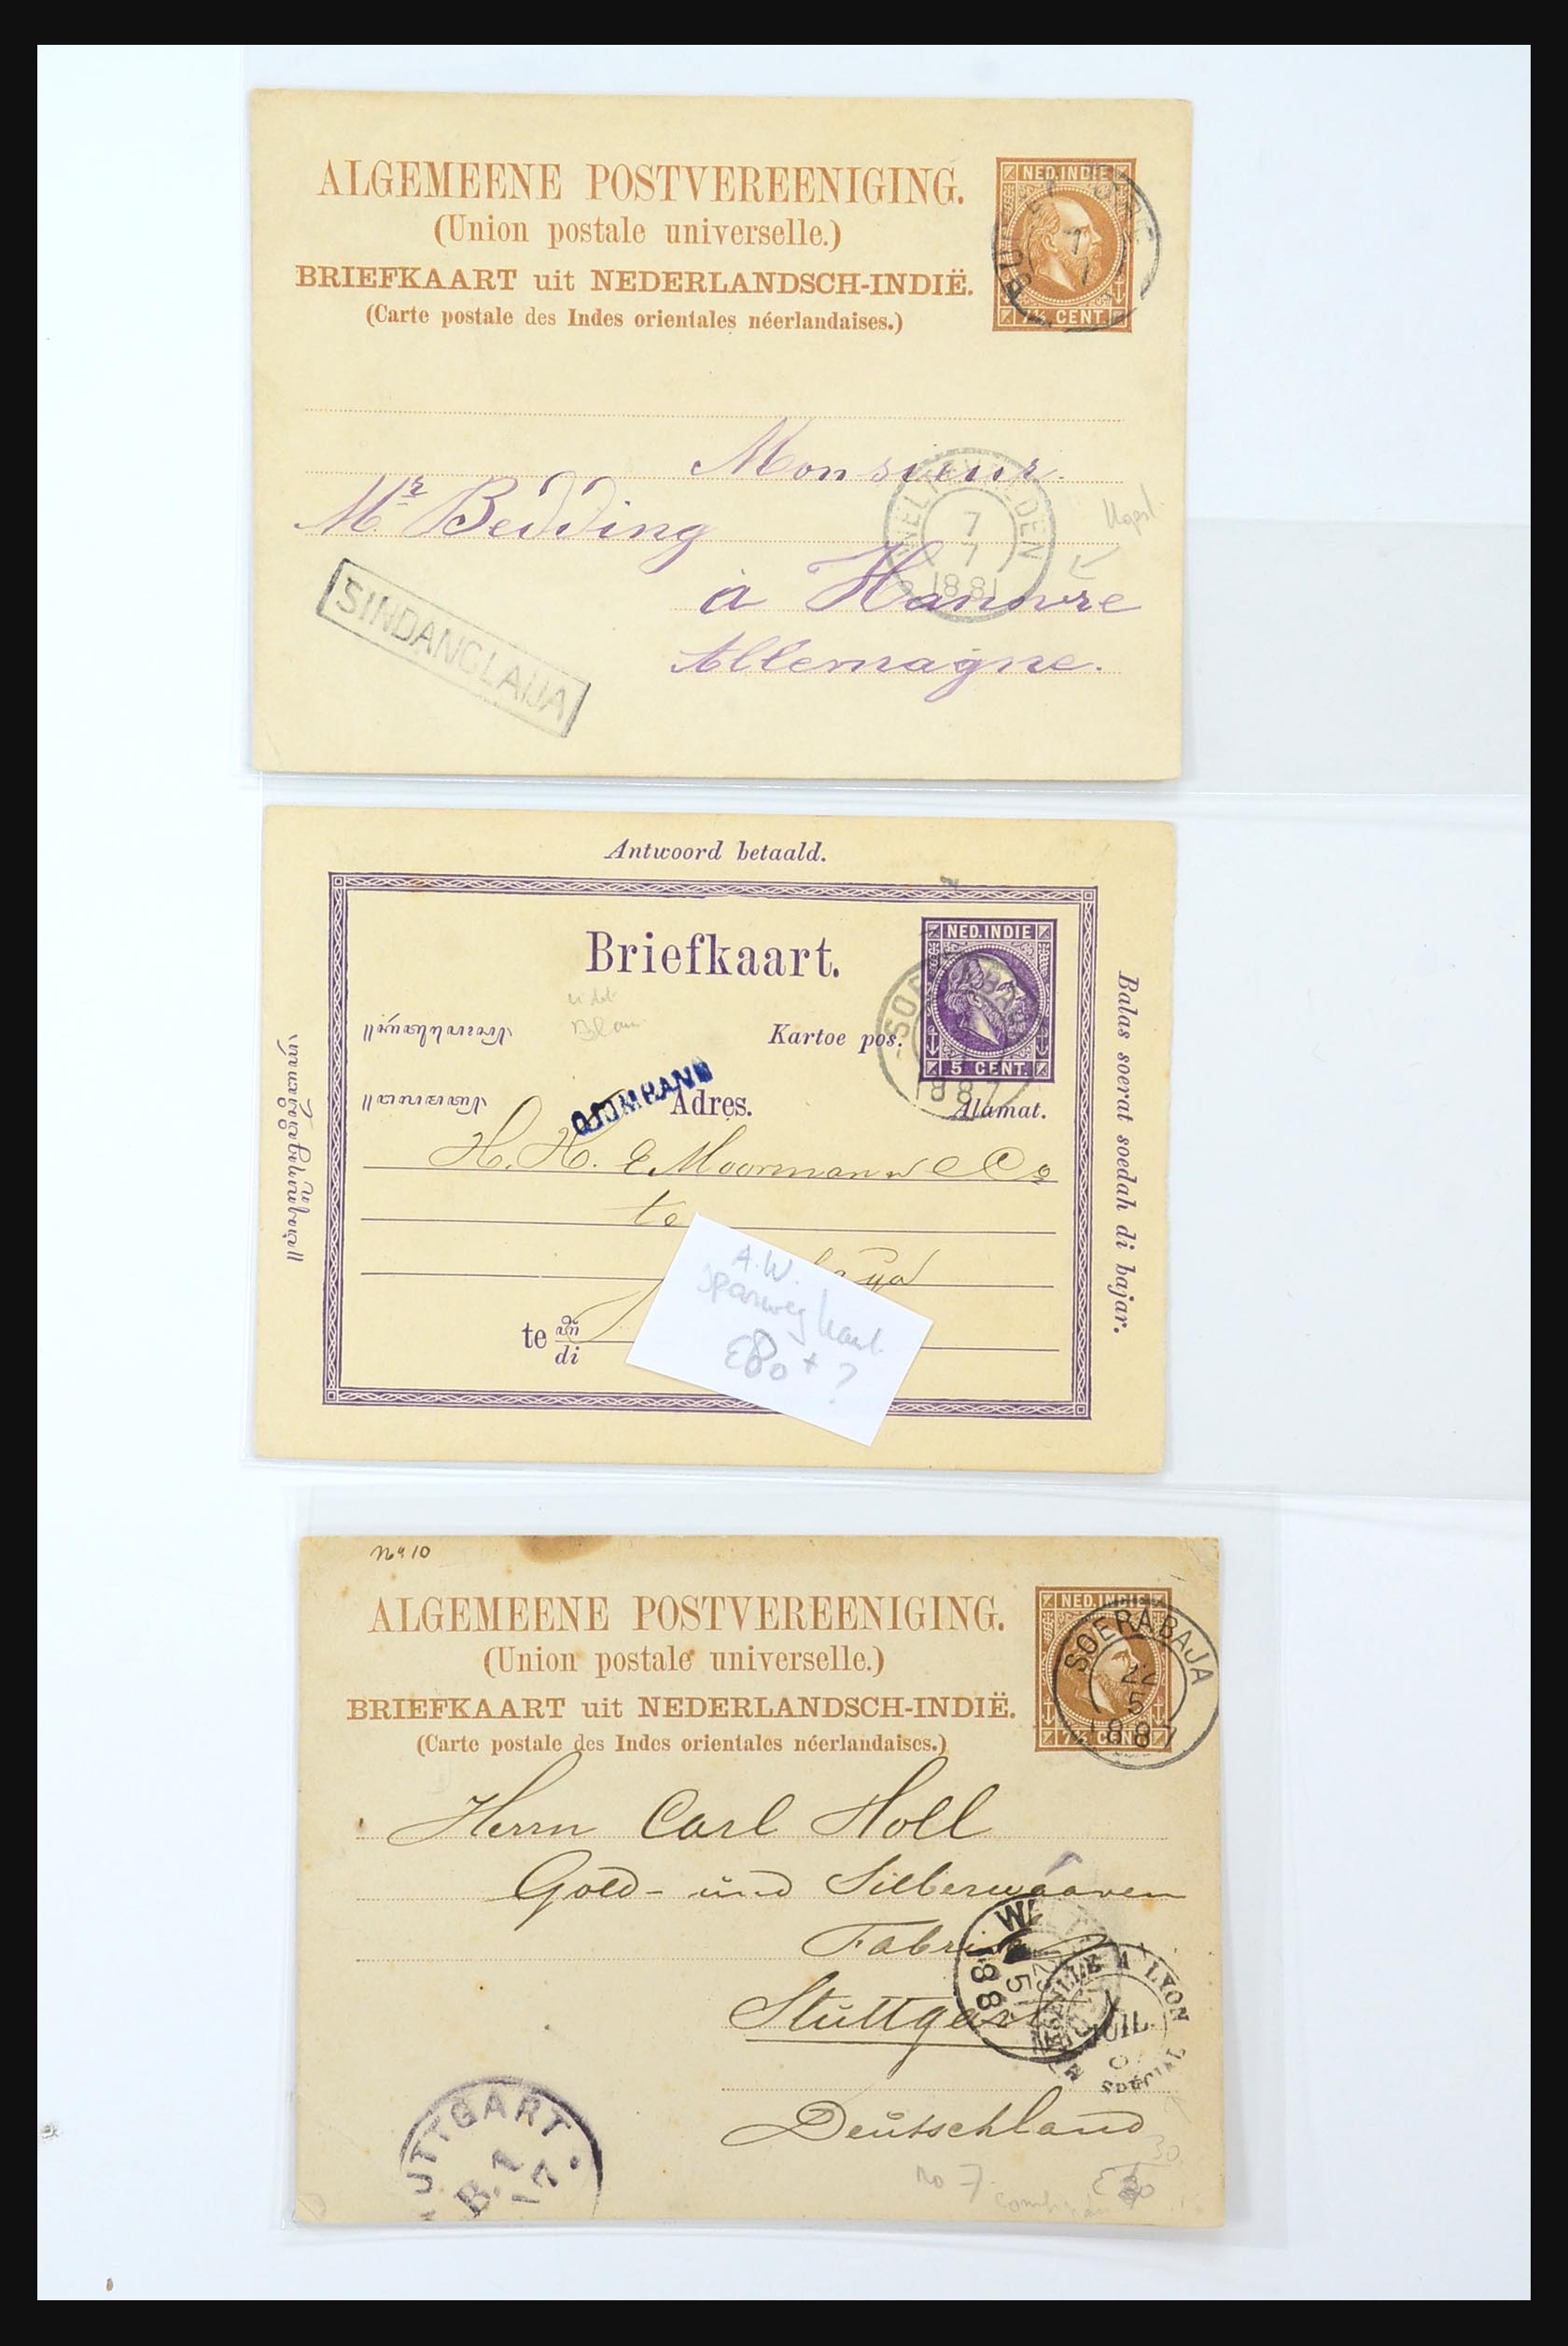 ALGEMEENE POSTVEREENIGING.
(Union postale universelle.)
BRIEFKAART uit NEDERLANDSCH-INDIË.
(Carte postale des Indes orientales néerlandaises.)
NED. INDIE
7½ CENT.
7
7
Monsieur
Mr Bedding
à Hannovre
Allemagne.
WELTEVREDEN
7
7
1881
SINDANGLAIJA
Antwoord betaald.
Briefkaart.
NED. INDIE
5 CENT.
Kartoe pos.
Adres.
Alamat.
DJOMBANG
188
H. H. E. Moormann & Co
te
te
di
Balas soerat soedah di bajar.
A.W.
€80+?
No 10
ALGEMEENE POSTVEREENIGING.
(Union postale universelle.)
BRIEFKAART uit NEDERLANDSCH-INDIË.
(Carte postale des Indes orientales néerlandaises.)
NED. INDIE
7½ CENT
SOERABAJA
22
5
1887
Herrn Carl Holl
Gold- und Silberwaaren
Fabrik
Stuttgart
Deutschland
MARSEILLE A LYON
JUIL.
SPECIAL
STUTTGART
no 7
30